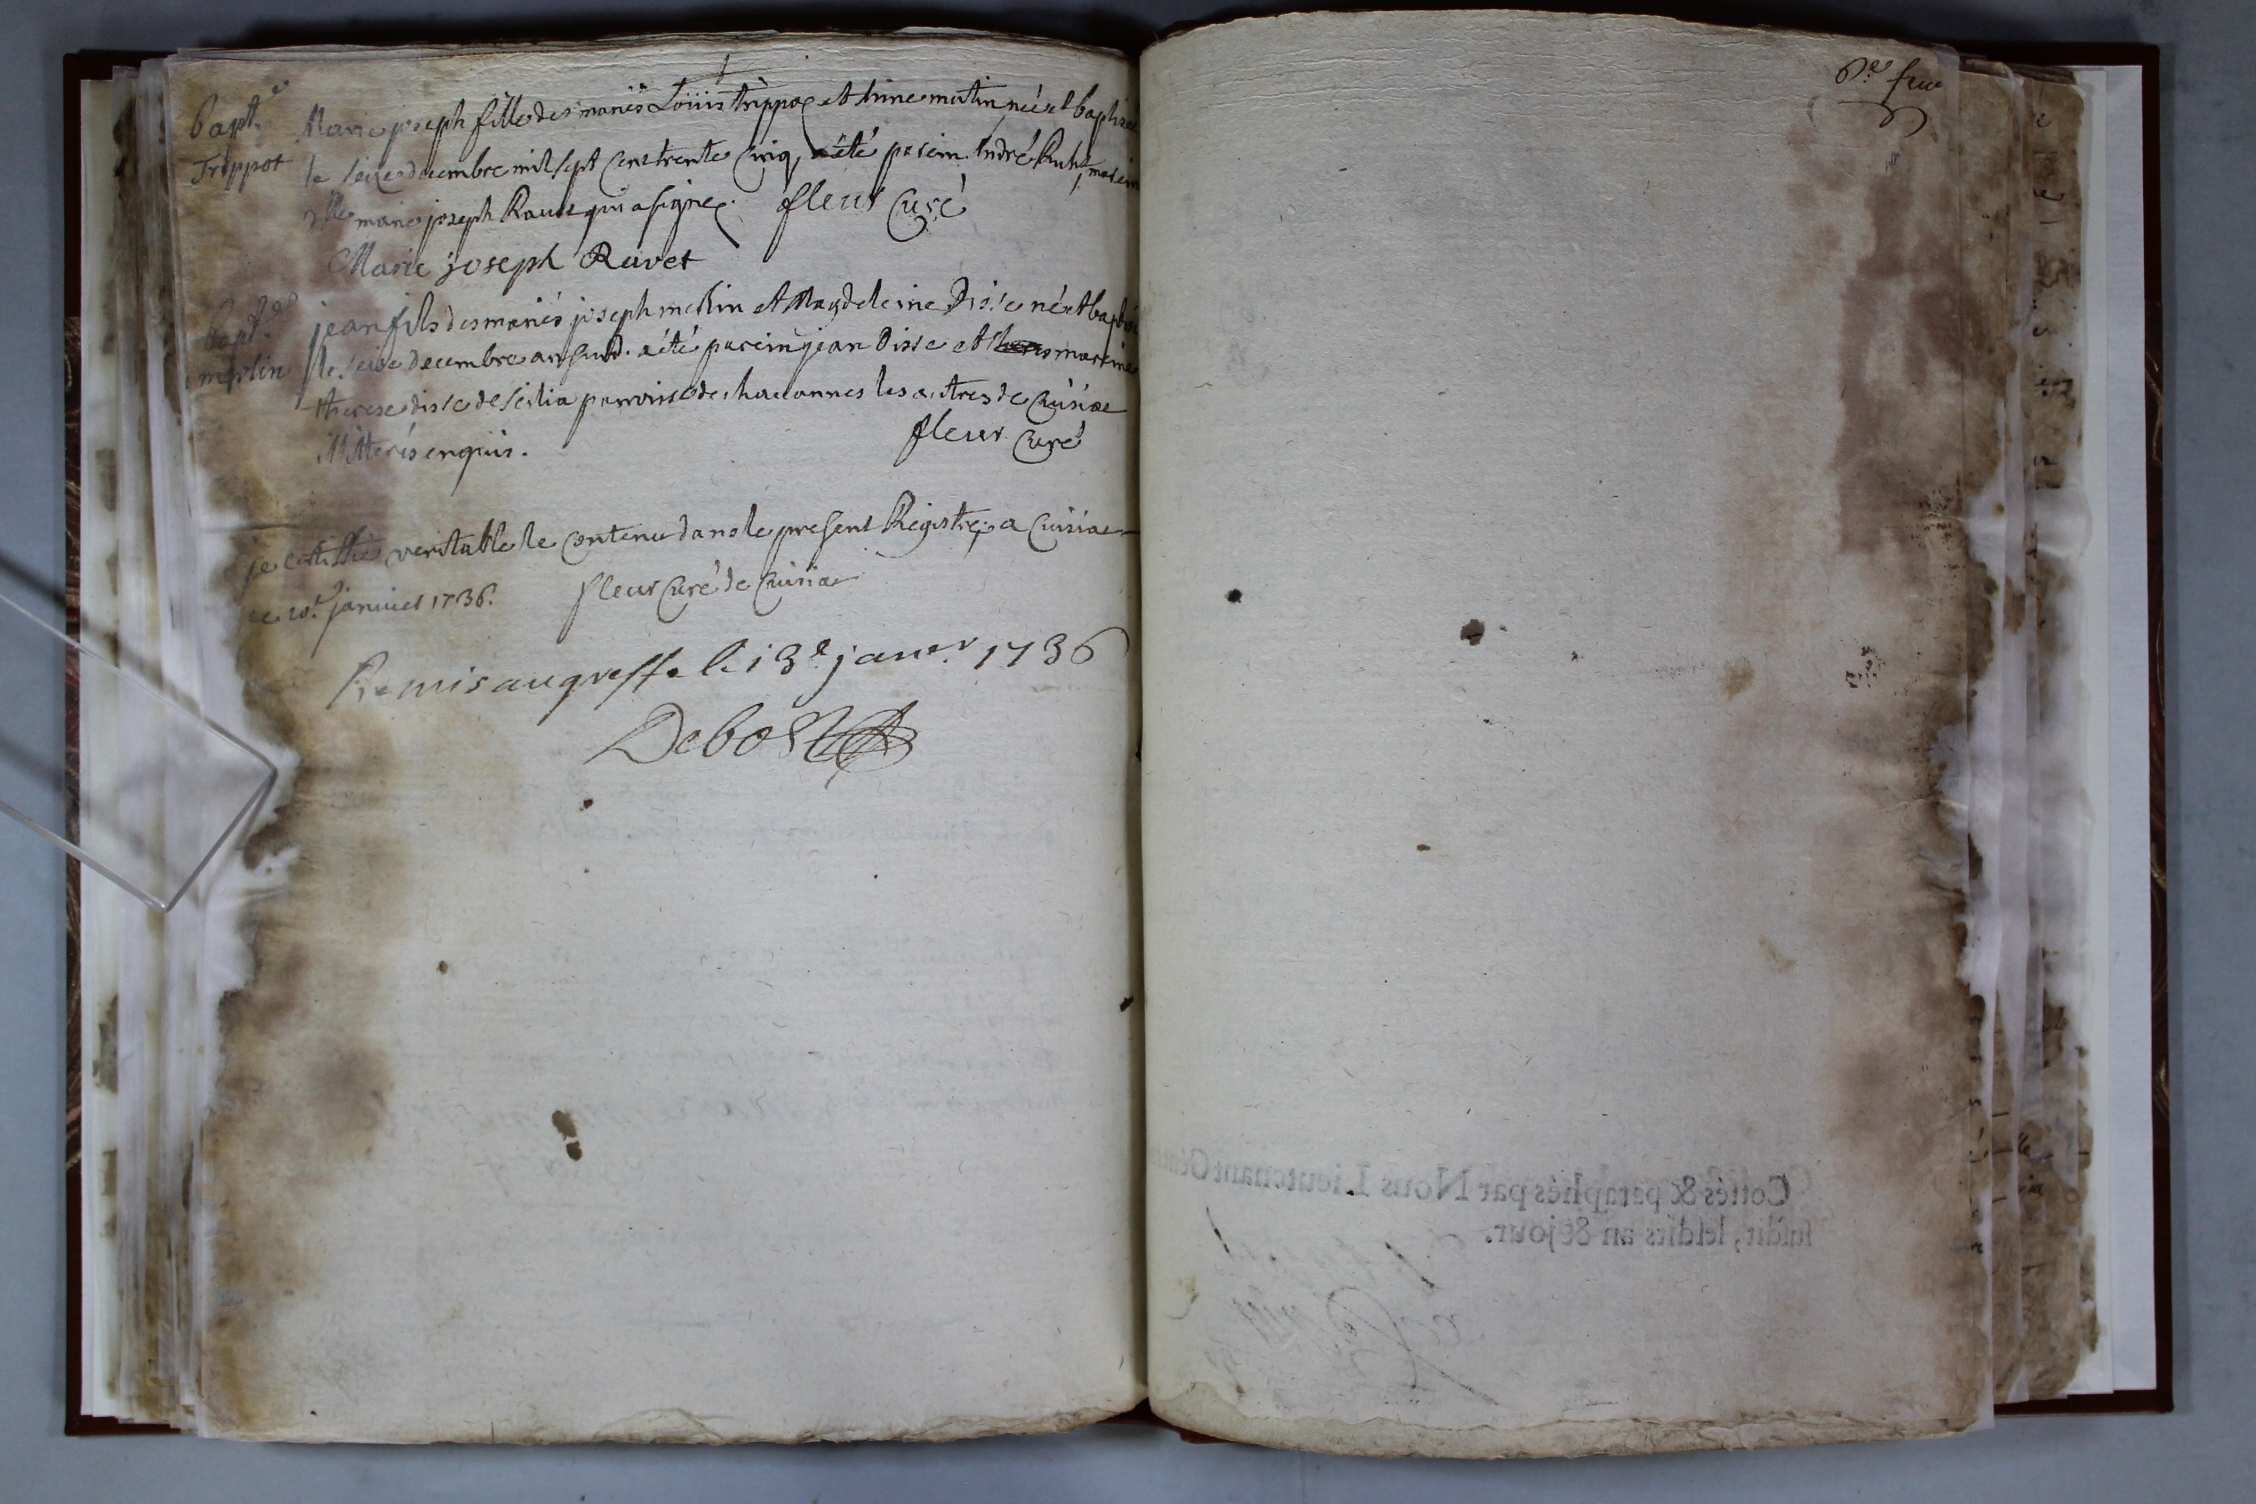 Bapt.e
Trippot
Marie joseph fille des mariés Loüis trippoz et Anne martin née et baptisée
le seize decembre mil sept cent trente cinq, a été parein André mareine
d.lle marie joseph Ravet qui a signez. fleur Curé
Marie joseph Ravet
Bapt.e
merlin
jean fils des mariés joseph merlin et Magdeleine Disse né et baptisé
le seize decembre an susd. a été parein jean Disse et mareine
therese disse de paroisse de les autres de Cuisia
illitterés enquis.
fleur Curé
je certiffie veritable le contenu dans le present Registre, a Cuisia
ce 10.e janvier 1736. fleur Curé de Cuisia
Remis au greffe le 13.e janer 1736
6.e feu
Cottés & paraphés par Nous Lieutenant
susdit, lesdits an & jour.